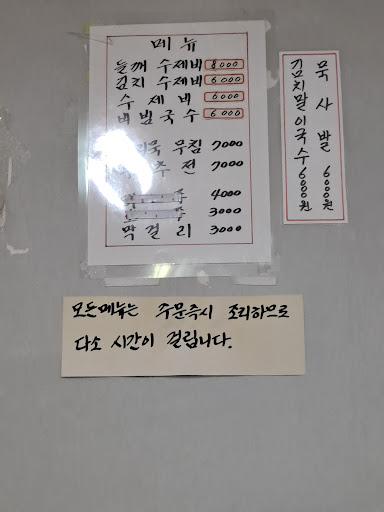 메뉴
들깨 수제비 8000
김치 수제비 6000
수제비 6000
비빔국수 6000
묵 무침 7000
추전 7000
주 4000
주 3000
막걸리 3000
묵사발 6000원
김치말이국수 6000원
모든메뉴는 주문즉시 조리하므로
다소 시간이 걸립니다.